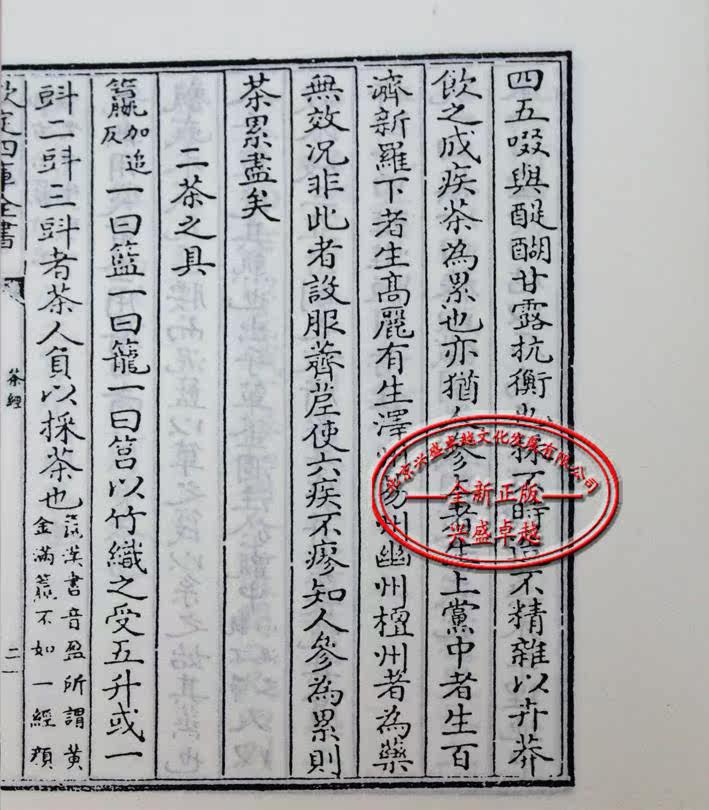 四五啜與醍醐甘露抗衡也採不時造不精雜以卉莽
飲之成疾茶為累也亦猶人參上者生上黨中者生百
濟新羅下者生髙麗有生澤州易州幽州檀州者為藥
無效况非此者設服薺苨使六疾不瘳知人參為累則
茶累盡矣
二茶之具
籯加追反一曰籃一曰籠一曰筥以竹織之受五升或一
㪷二㪷三㪷者茶人負以採茶也籯漢書音盈所謂黃金滿籯不如一經顔
欽定四庫全書
茶經
二
北京兴盛卓越文化发展有限公司
全新正版
兴盛卓越